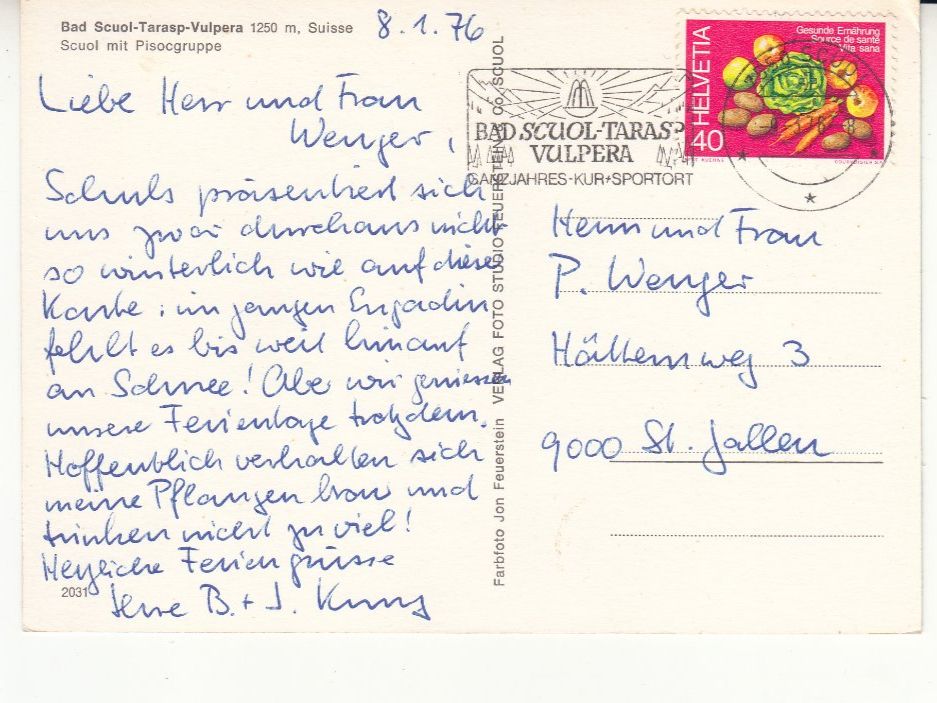 Bad Scuol-Tarasp-Vulpera 1250 m, Suisse
Scuol mit Pisocgruppe
8.1.76
Liebe Herr und Frau
Wenger,
Schuls präsentiert sich
uns zwar durchaus nicht
so winterlich wie auf dieser
Karte: im ganzen Engadin
fehlt es bis weit hinauf
an Schnee! Aber wir geniessen
unsere Ferientage trotzdem.
Hoffentlich verhalten sich
meine Pflanzen brav und
trinken nicht zu viel!
Herzliche Feriengrüsse
Ihre B. + J. Kunz
2031
Farbfoto Jon Feuerstein VERLAG FOTO STUDIO FEUERSTEIN & CO. SCUOL
BAD SCUOL-TARASP
VULPERA
GANZJAHRES-KUR+SPORTORT
HELVETIA
40
Gesunde Ernährung
Source de santé
Vita sana
COURVOISIER S.A.
Herrn und Frau
P. Wenger
Hätternweg 3
9000 St. Gallen